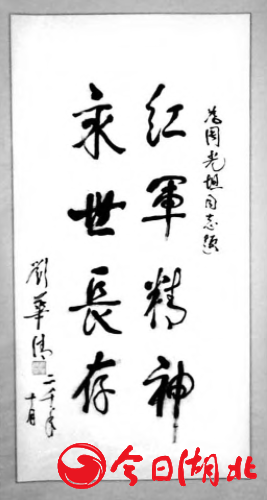 为周光坦同志题
红軍精神
永世長存
劉華清
二千年
十月
今日湖北